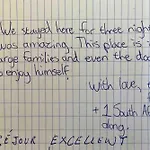 We stayed here for three nigh
was amazing. This place is i
arge families and even the do
o enjoy himself.
With love,
+ 1 South Af
along.
ÉJOUR EXCELLENT